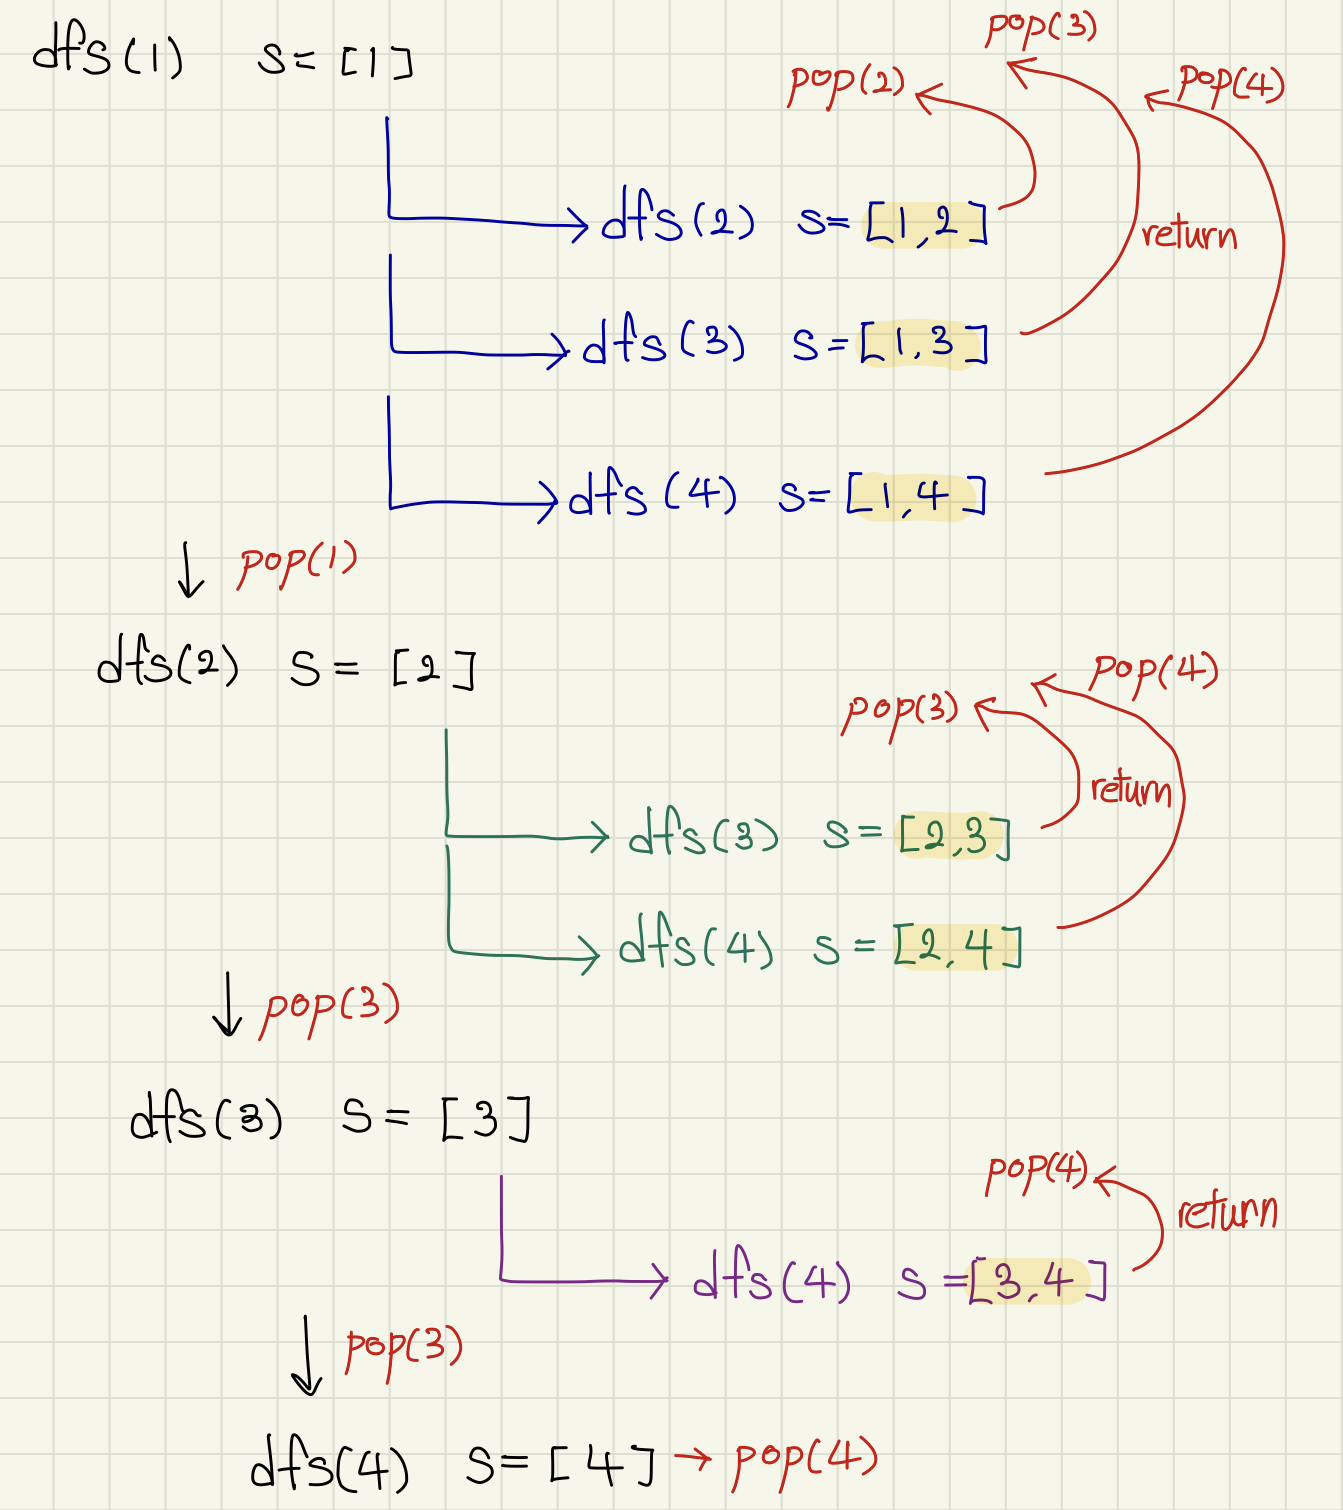 dfs(1) s=[1]
pop(3)
pop(2)
pop(4)
dfs(2) s=[1,2]
return
dfs(3) s=[1,3]
dfs(4) s=[1,4]
↓ pop(1)
dfs(2) s=[2]
pop(4)
pop(3)
return
dfs(3) s=[2,3]
dfs(4) s=[2,4]
↓ pop(3)
dfs(3) s=[3]
pop(4)
return
dfs(4) s=[3,4]
↓ pop(3)
dfs(4) s=[4] → pop(4)